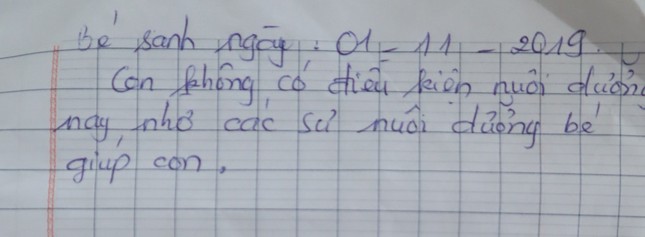 bé sanh ngày : 01 - 11 - 2019.
Con không có điều kiện nuôi dưỡng
nay nhờ các sư nuôi dưỡng bé
giúp con.